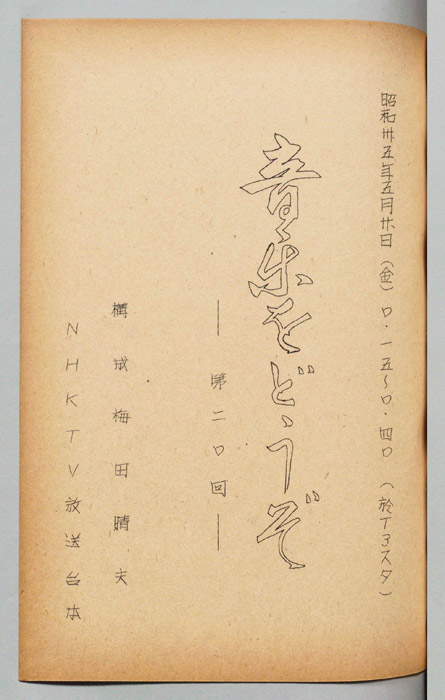 昭和卅五年五月廿日(金)0・一五〜0・四0(於T3スタ)
音楽をどうぞ
―第二0回―
構成梅田晴夫
NHKTV放送台本